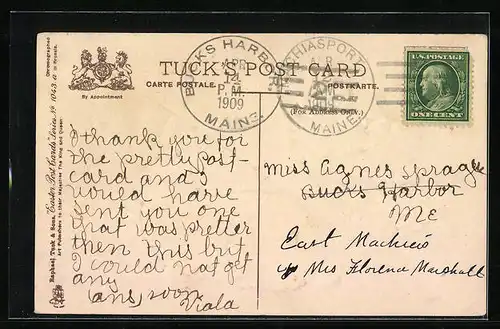 TUCK'S POST CARD
CARTE POSTALE.
POSTKARTE.
(For Address Only.)
By Appointment
BUCKS HARBOR
APR
14
P.M.
1909
MAINE
MACHIASPORT
APR
MAINE
U.S. POSTAGE
ONE CENT
Raphael Tuck & Sons' "Easter Post Cards" Series
Art Publishers to their Majesties The King and Queen.
I thank you for
the pretty Post-
card and I
would have
sent you one
that was pretter
then this but
I could not get
any
ans, soon
Viola
Miss Agnes Sprague
Bucks Harbor
ME
East Machias
c/o Mrs Florena Marshall